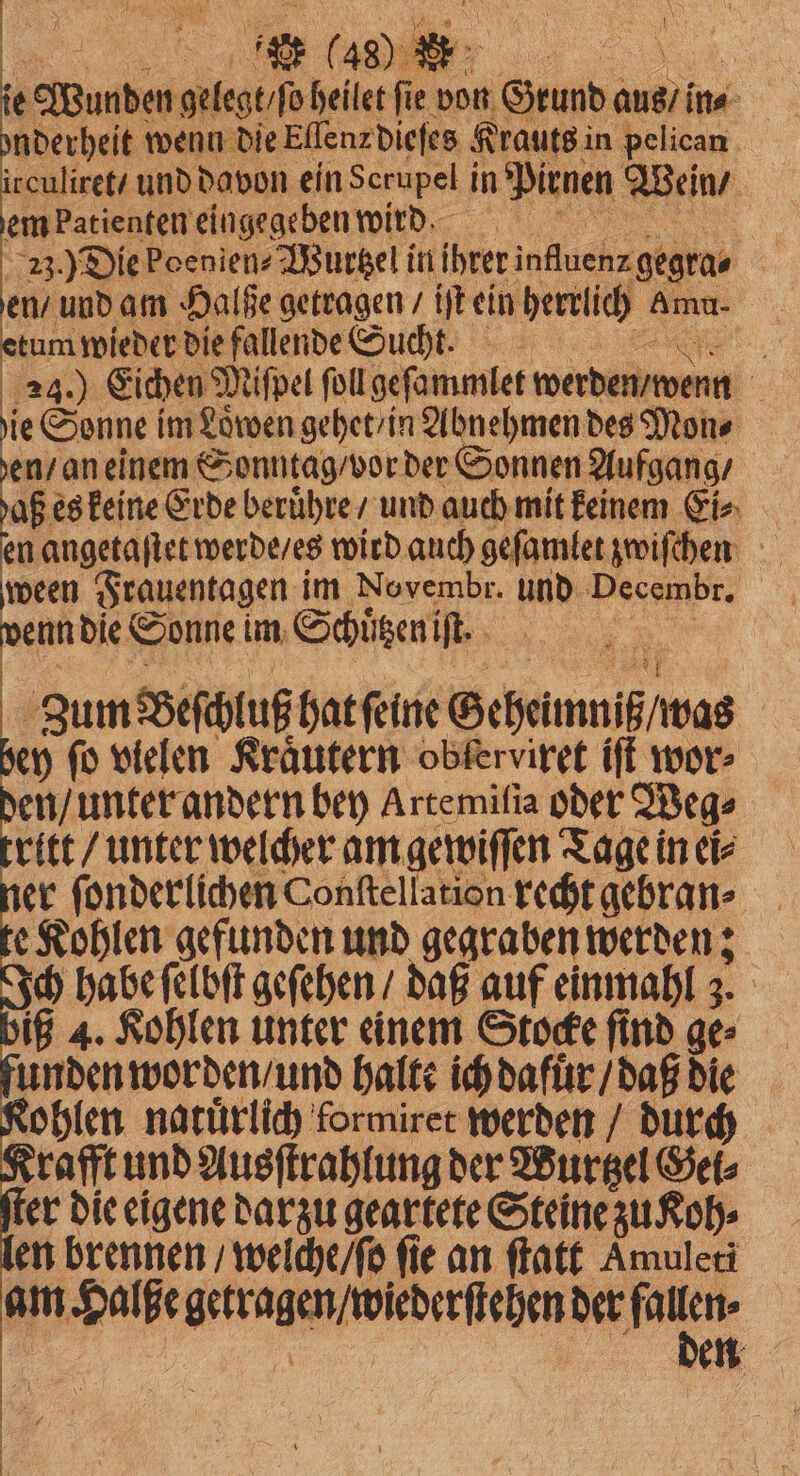 (48)
ie Wunden gelegt/ſo heilet ſie von Grund aus/ in⸗
onderheit wenn die Eſſenz dieſes Krauts in pelican
irculiret/ und davon ein Scrupel in Pirnen Wein/
em Patienten eingegeben wird.
23.) Die Poenien⸗Wurtzel in ihrer influenz gegra⸗
en/ und am Halße getragen / iſt ein herrlich Amu-
etum wieder die fallende Sucht.
24.) Eichen Miſpel ſoll geſammlet werden/wenn
ie Sonne im Loͤwen gehet/in Abnehmen des Mon⸗
en/ an einem Sonntag/vor der Sonnen Aufgang/
aß es keine Erde beruͤhre / und auch mit keinem Ei⸗
en angetaſtet werde/es wird auch geſamlet zwiſchen
ween Frauentagen im Novembr. und Decembr.
wenn die Sonne im Schuͤtzen iſt.
Zum Beſchluß hat ſeine Geheimniß/was
bey ſo vielen Kraͤutern obſerviret iſt wor⸗
den/ unter andern bey Artemiſia oder Weg⸗
tritt / unter welcher am gewiſſen Tage in ei⸗
ner ſonderlichen Conſtellation recht gebran⸗
te Kohlen gefunden und gegraben werden;
Ich habe ſelbſt geſehen / daß auf einmahl 3.
biß 4. Kohlen unter einem Stocke ſind ge⸗
funden worden/und halte ich dafuͤr / daß die
Kohlen natuͤrlich formiret werden / durch
Krafft und Ausſtrahlung der Wurtzel Gei⸗
ſter die eigene darzu geartete Steine zu Koh⸗
len brennen / welche/ſo ſie an ſtatt Amuleti
am Halße getragen/wiederſtehen der fallen⸗
den